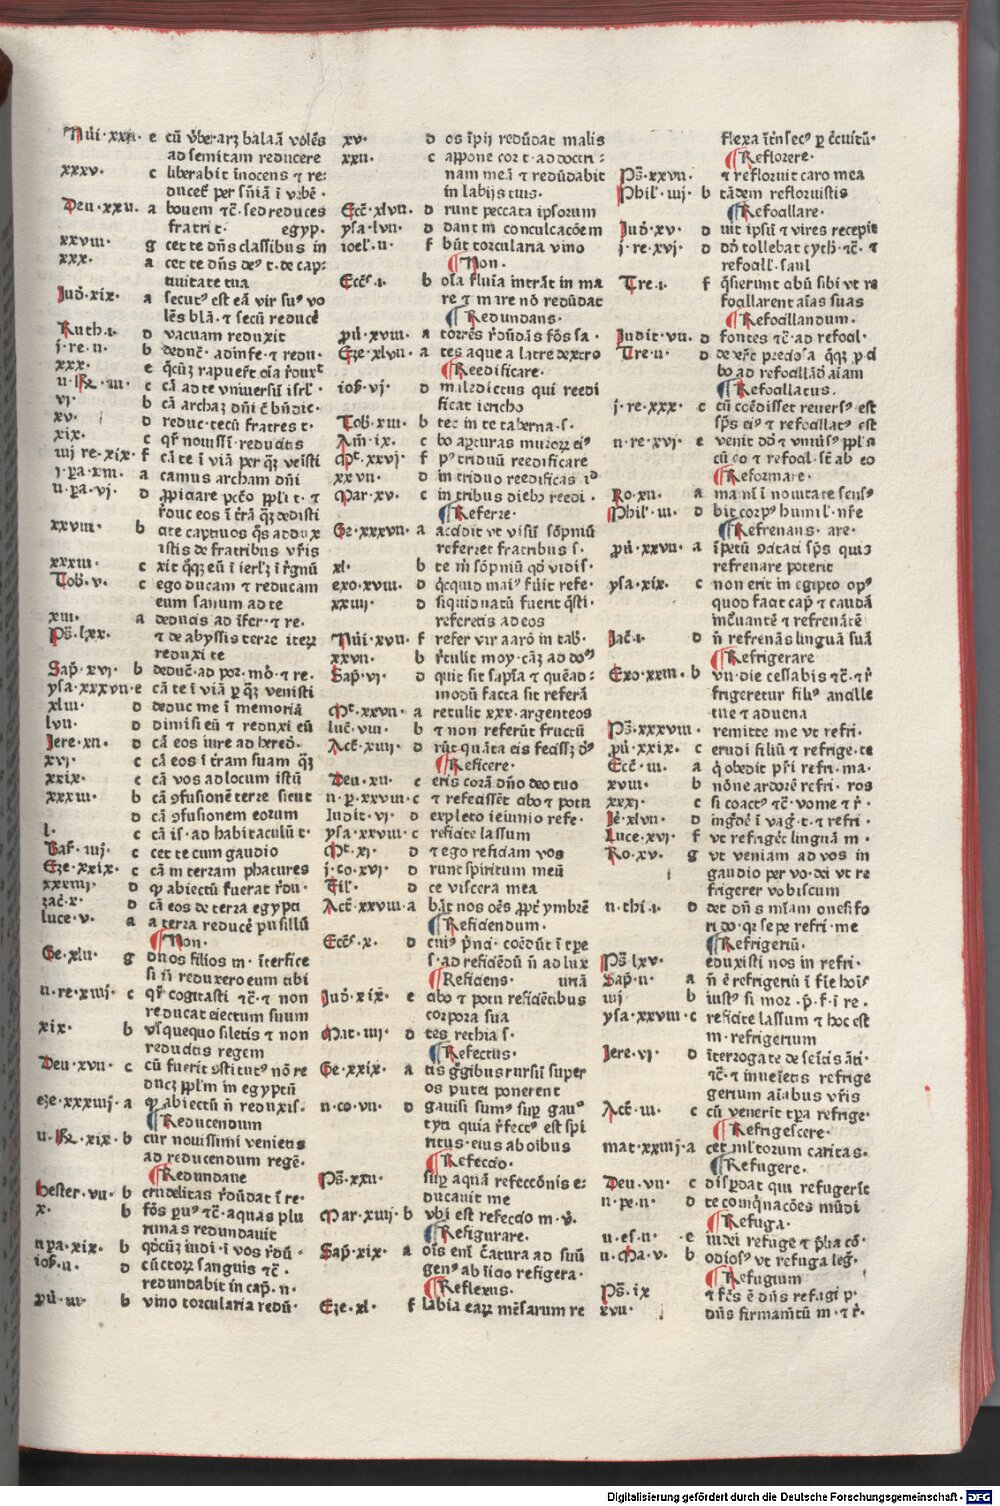 Nūi·xxii· e cū v̄ber·arꝫ balaā volēs
ad semitam reducere
xxxv· c liberabit īnocens ⁊ re-
duceť per sn̄iā ī vrbē·
Deu·xxii· a bouem ⁊c̄·sed reduces
fratri t· egyp.
xxviii· g cet te dn̄s classibus in
xxx· a cet te dn̄s deꝰ t·de cap-
tiuitate tua
Jud·xix· a secutꝰ est eā vir suꝰ vo
lēs blā·⁊ secū reducē
Ruth·i· d vacuam reduxit
j·re·ii· b deduc̄·ad infe·⁊ redu·
xxx· e
vj· b cā archaꝫ dn̄i ē bn̄dic·
xv· d reduc tecū fratres t·
xix· c qr̄ nouissī·reducitis
iiij re·xix· f cā te ī viā per qꝫ veīsti
j·pa·xiii· a camus archam dn̄i
ij·pa·vj· d
xxviii· b ate captiuos qs addux
istis de fratribus vr̄is
xxxiii· c
Tob·v· c ego ducam ⁊ reducam
eum sanum ad te
xiii· a deducis ad īfer·⁊ re·
Ps̄·lxx· ⁊ de abyssis terre iteꝝ
reduxi te
Sap̄·xvj· b deduc̄·ad por·mō·⁊ re·
ysa·xxxvii·e cā te ī viā ꝑ qꝫ venisti
xlii· d deduc me ī memoriā
lvii· d dimisi eū ⁊ reduxi eū
Jere·xii· d cā eos iure ad hered·
xvj· c cā eos ī tr̄am suam qꝫ
xxix· c cā vos ad locum istū
xxxiii· b cā ꝯfusionē terre sicut
d cā ꝯfusionem eorum
l· c cā is̄·ad habitaculū t·
Bar̄·iiij· c cet te cum gaudio
Eze·xxix· c cā in terram phatures
xxxiiij· d ꝙ abiectū fuerat r̄du·
zac̄·x· d cā eos de terra egypti
luce·v· a a terra reducē pusillū
¶Non·
Ge·xlii· g duos filios m·īterfice
si n̄ reduxero eum tibi
ij·re·xiiij· c qr̄ cogitasti ⁊c̄·⁊ non
reducat eiectum suum
xix· b vsquequo siletis ⁊ non
reducitis regem
Deu·xvii· c cū fuerit ꝯstitutꝰ nō re
ducꝫ pp̄l'm in egyptū
eze·xxxiiij· a ꝙ abiectū n̄ reduxis·
¶Reducendum
ij·Re·xix· b cur nouissimi veniens
ad reducendum regē·
¶Redundaue
hester·vii· b crudelitas r̄dūdat ī re·
x· b fōs puꝰ ⁊c̄·aquas plu
rimas redundauit
ij pa·xix· b
iob·ii· d cūctoꝝ sanguis ⁊c̄·
redundabit in cap̄·ij·
pū·iii· b vino torcularia redū·
xv· d os īpij redūdat malis
xxii· c appone cor t·ad doctri-
nam meā ⁊ redūdabit
in labijs tuis·
Ecc̄·xlvii· d runt peccata ipsorum
ysa·lvii· d dant in conculcacōem
ioel·ii· f būt torcularia vino
¶Non·
Ecc̄s·i· b oīa fluīa intrāt in ma
re ⁊ mare nō redūdat
¶Redundans·
pū·xviii· a torrēs r̄dūdās fōs sa·
Eze·xlvii· a tes aque a latere dextro
¶Reedificare·
iob·vj· d maledictus qui reedi
ficat iericho
Tob·xiii· b tec in te taberna·s·
Am̄·ix· c bo aperturas muroꝝ eiꝰ
Mt̄·xxvj· f pꝰ triduū reedificare
xxvii· d in triduo reedificas
Mar·xv· c in tribus diebꝰ reedi·
¶Referre·
Ge·xxxvii· a accidit vt visū sōpniū
referret fratribus s·
xl· b te m̄ sōpniū qd̄ vidis·
exo·xviii· d qcquid maiꝰ fūit refe·
xxiij· d si quid natū fuerit qsti·
referetis ad eos
Nūi·xvii· f refer vir aarō in tab̄·
xxvii· b r̄tulit moy·cāꝫ ad doꝰ
Sap̄·vj· d quit sit sapīa ⁊ quēad-
modū facta sit referā
Mt̄·xxvii· a retulit xxx·argenteos
luc̄·viii· b ⁊ non referūt fructū
Act̄·xiiij· d rūt quāta eis fecissꝫ dꝰ
¶Reficere·
Deu·xii· c eris corā dn̄o deo tuo
ij·p·xxviii·c ⁊ refecissēt cibo ⁊ potu
Iudit·vj· d expleto ieiunio refe·
ysa·xxviii· c reficite lassum
Mt̄·xj· d ⁊ ego reficiam vos
j·co·xvj· d runt spiritum meū
Fil'· d ce viscera mea
Act̄·xxviii·a bāt nos oēs ppt̄ ymbrē
¶Reficiendum·
Ecc̄s·x· d cuiꝰ pn̄ci·coēdūt ī tpe
s·ad reficiēdū n̄ ad lux
¶Reficiens· uriā
Jud·xix· e cibo ⁊ potu reficiētibus
corpora sua
Mat·iiij· d tes rethia s·
¶Refectus·
Ge·xxix· a tis ḡgibus rursū super
os putei ponerent
ij·co·vii· d gauisi sumꝰ suꝑ gauꝰ
tyti quia r̄fectꝰ est spi
ritus·eius a boibus
¶Refectio·
Ps̄·xxii· suꝑ aquā refectiōnis e-
ducauit me
Mar·xiiij· b vbi est refectio m·
¶Refigurare·
Sap̄·xix· a oīs enī c̄atura ad suū
genꝰ ab īicio refigera·
¶Reflexus·
Eze·xl· f labia eaꝝ mēsarum re
flexa īt̄nsecꝰ ꝑ c̄cuitū·
¶Reflorere·
Ps̄·xxvii· ⁊ refloruit caro mea
Phil'·iiij· b tādem refloruistis
¶Refocillare·
Jud·xv· d uit ipsū ⁊ vires recepit
j·re·xvj· d dd̄ tollebat cyth̄·⁊c̄·⁊
refocill'·saul
Tre·i· f qsierunt cibū sibi vt re
focillarent aīas suas
¶Refocillandum·
Judit·vii· d fontes ⁊c̄·ad refocil·
Tre·ii· d
bo ad refocillād aīam
¶Refocillatus·
j·re·xxx· c cū coēdisset reuersꝰ est
sp̄s eiꝰ ⁊ refocillatꝰ est
ij·re·xvj· e venit dd̄ ⁊ vniūsꝰ ppl's
cū eo ⁊ refocil·st̄ ab eo
¶Reformare·
Ro·xii· a mami ī nouitate sensꝰ
Phil'·iii· d bit corpꝰ humil·nr̄e
¶Refrenans·are·
pū·xxvii· a īpetū ꝯcitati sp̄s quis
refrenare poterit
ysa·xix· c non erit in egipto opꝰ
quod faciat cap̄ ⁊ caudā
īncuantē ⁊ refrenātē
Jac̄·i· d n̄ refrenās linguā suā
¶Refrigerare
Exo·xxiii· b vii·die cessabis ⁊c̄·⁊ r̄
frigeretur filiꝰ ancille
tue ⁊ aduena
Ps̄·xxxviii· remitte me vt refri·
pū·xxix· c erudi filiū ⁊ refrige·te
Ecc̄·iii· a q obedit pr̄i refri·ma·
xviii· b nōne ardorē refri·ros
xxxj· c si coactꝰ ⁊c̄·vome ⁊ r̄·
Je·xlvii· d ingdē ī vaḡ·t·⁊ refri·
Luce·xvj· f vt refrigēt linguā m·
Ro·xv· g vt veniam ad vos in
gaudio per vo·dei vt re
frigerer vobiscum
ij·thi·i· d det dn̄s mīam onesifo
ri do·qr sepe refri·me
¶Refrigeriū·
Ps̄·lxv· eduxisti nos in refri·
Sap̄·ii· a n̄ ē refrigeriū ī fie hoīs
iiij b iustꝰ si mor·p̄·f·ī re·
ysa·xxviii·c reficite lassum ⁊ hoc est
m·refrigerium
Jere·vj· d īterrogate de semitis āti·
⁊c̄·⁊ inuēietis refrige
gerium aīabus vr̄is
Act̄·iii· c cū venerit tpa refrige·
¶Refrigescere·
mat·xxiiij·a cet ml'torum caritas·
¶Refugere·
Deu·vii· c disꝑdat qui refugerit
ij·pe·ii· d te comqnacōes mūdi
¶Refuga·
ij·es·ii· e
ij·Ma·v· b odiosꝰ vt refuga leḡ·
¶Refugium
Ps̄·ix ⁊ f̄cs ē dn̄s refugi p·
xvii· dn̄s firmam̄tū m·⁊ r̄·
Digitalisierung gefördert durch die Deutsche Forschungsgemeinschaft - DFG